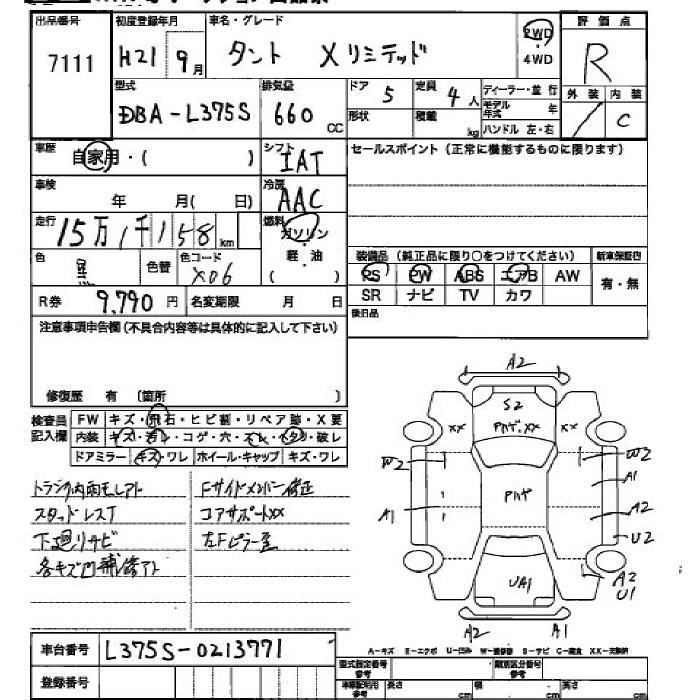 出品番号 初度登録年月 車名・グレード 評価点
7111 H21 9月 タント Xリミテッド 2WD R
・
4WD
型式 排気量 ドア 5 定員 4人 ディーラー・並行 外装 内装
DBA-L375S 660 CC 形状 積載 kg モデル年式 年 / C
ハンドル 左・右
車歴 自家用・( ) シフト IAT セールスポイント(正常に機能するものに限ります)
車検 年 月( 日) 冷房 AAC
走行 15万1千158km 燃料 ガソリン
軽・油
( )
色 黒 色替 色コード X06 装備品(純正品に限り○をつけてください) 新車保証書
PS PW ABS エアB AW 有・無
R券 9,790円 名変期限 月 日 SR ナビ TV カワ
注意事項申告欄(不具合内容等は具体的に記入して下さい) 後日品
修復歴 有 〔箇所 〕
検査員記入欄 FW キズ・飛石・ヒビ割・リペア跡・X要
内装 キズ・汚レ・コゲ・穴・スレ・ヘタリ・破レ
ドアミラー キズ・ワレ ホイール・キャップ キズ・ワレ
トランク内雨モレアト Fサイドメンバー修正
スタッドレスT コアサポートXX
下廻リサビ 左Fピラー歪
各キズ凹補修アト
A2
S2
XX Pハゲ.XX XX
W2 W2
A1
Pハゲ
A1 A2
U2
UA1 A2
U1
A2 A1
車台番号 L375S-0213771
A-キズ E-エクボ U-凹み W-補修跡 S-サビ C-腐食 XX-交換済
登録番号 型式指定番号 参考 類別区分番号 参考
長さ cm 幅 cm 高さ cm